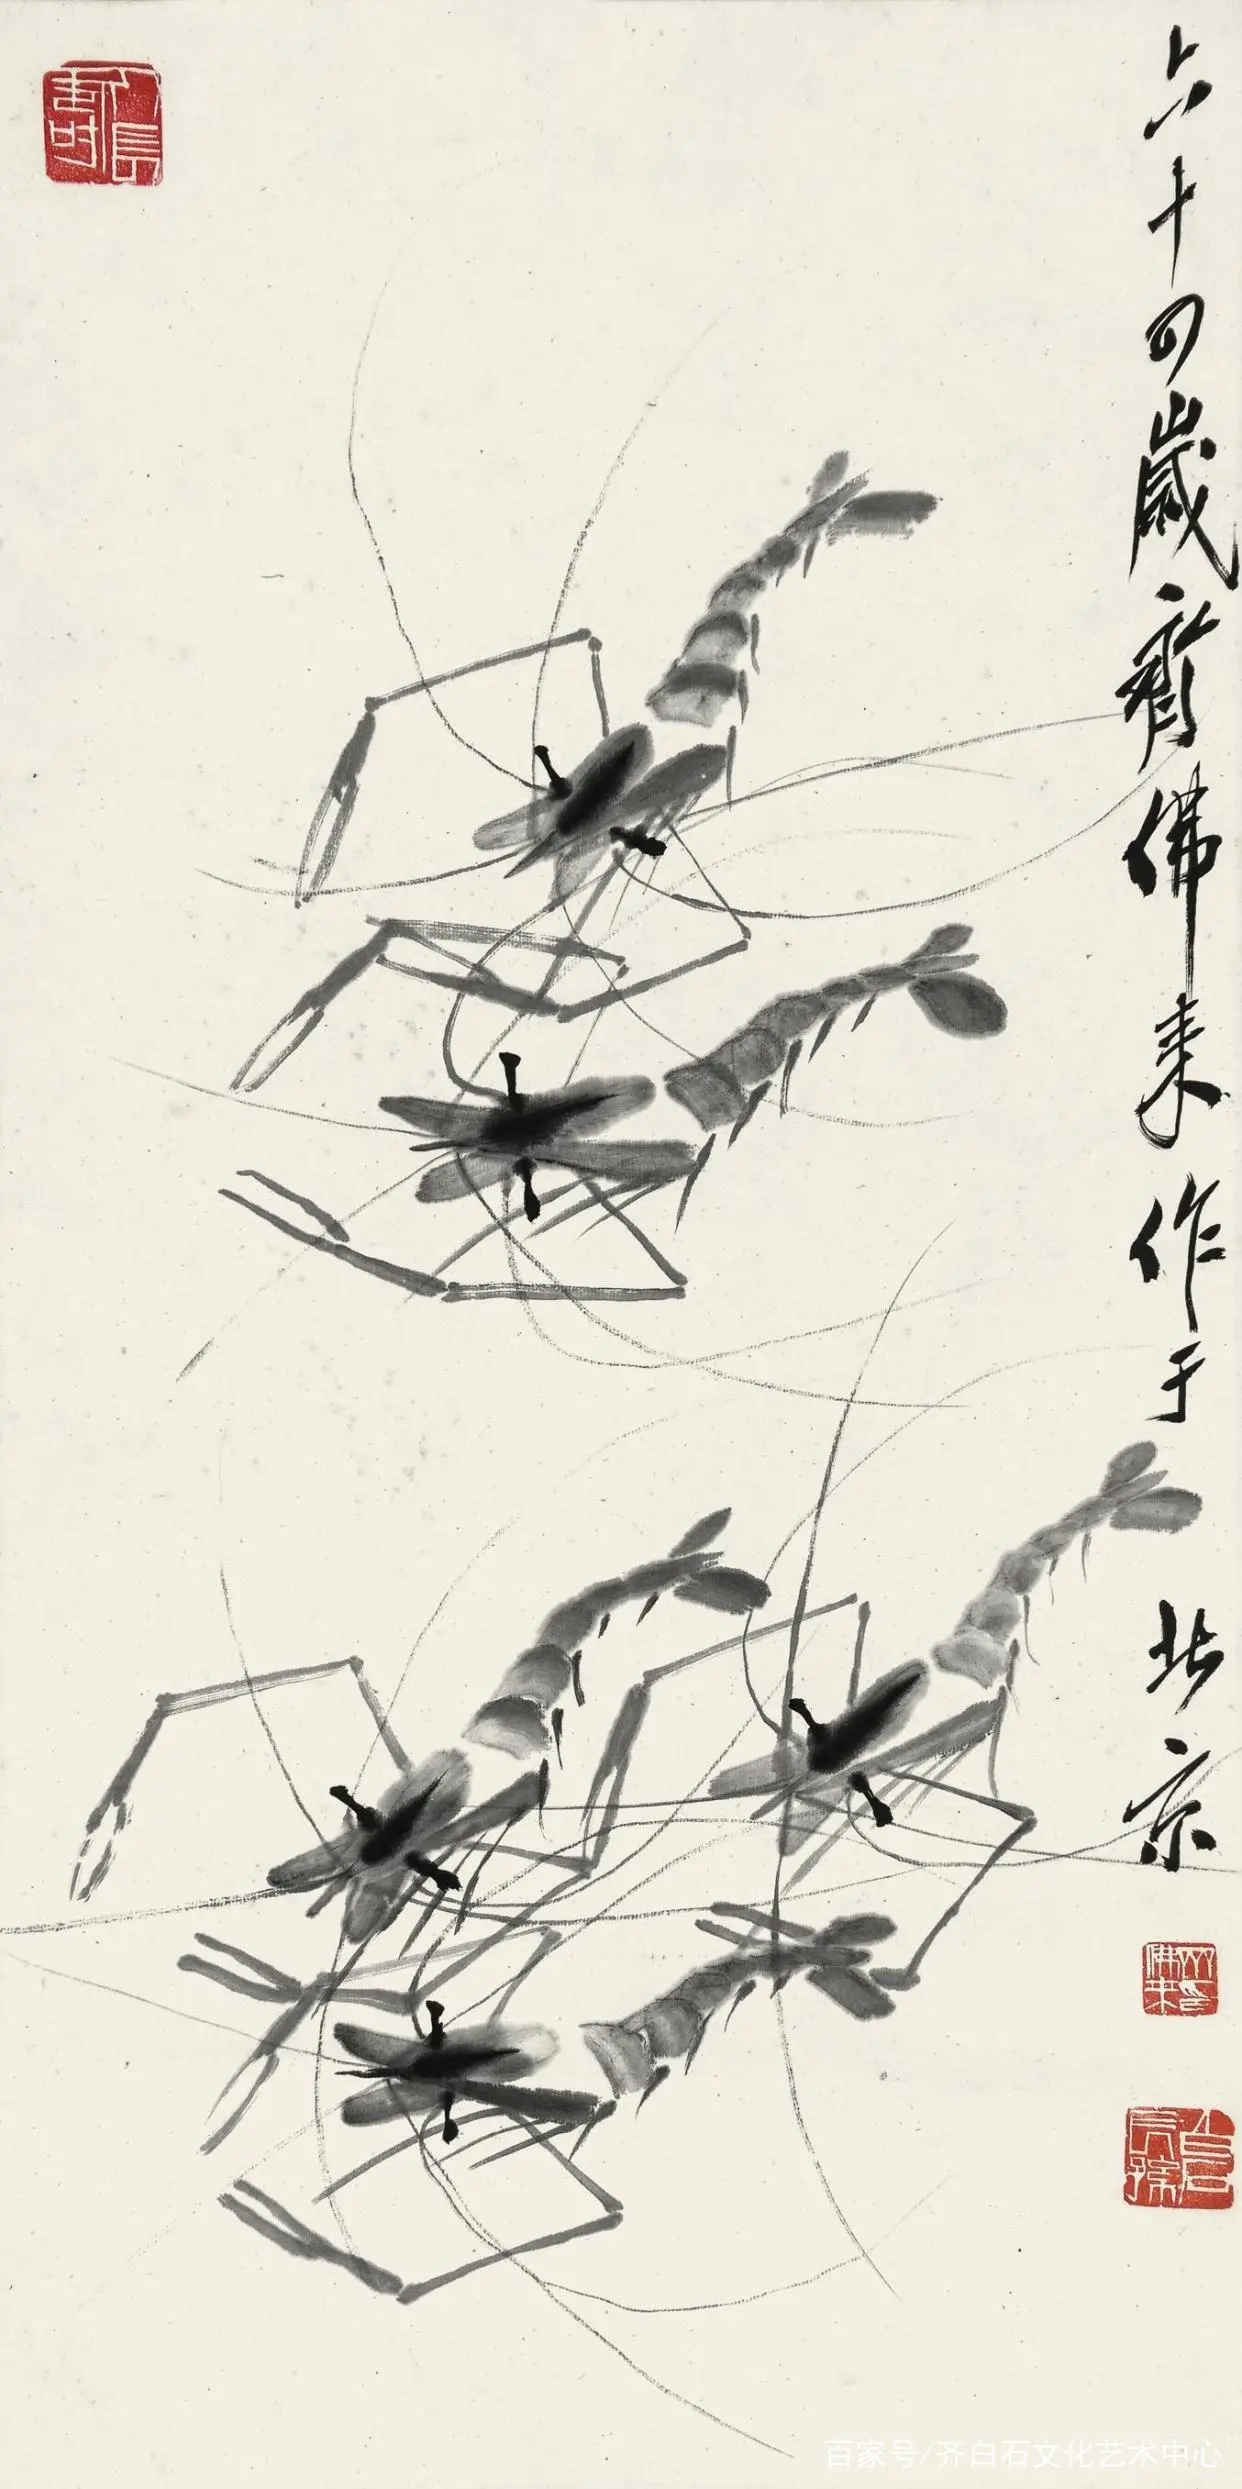 六十四歲齊佛来作于北京
百家号/齐白石文化艺术中心